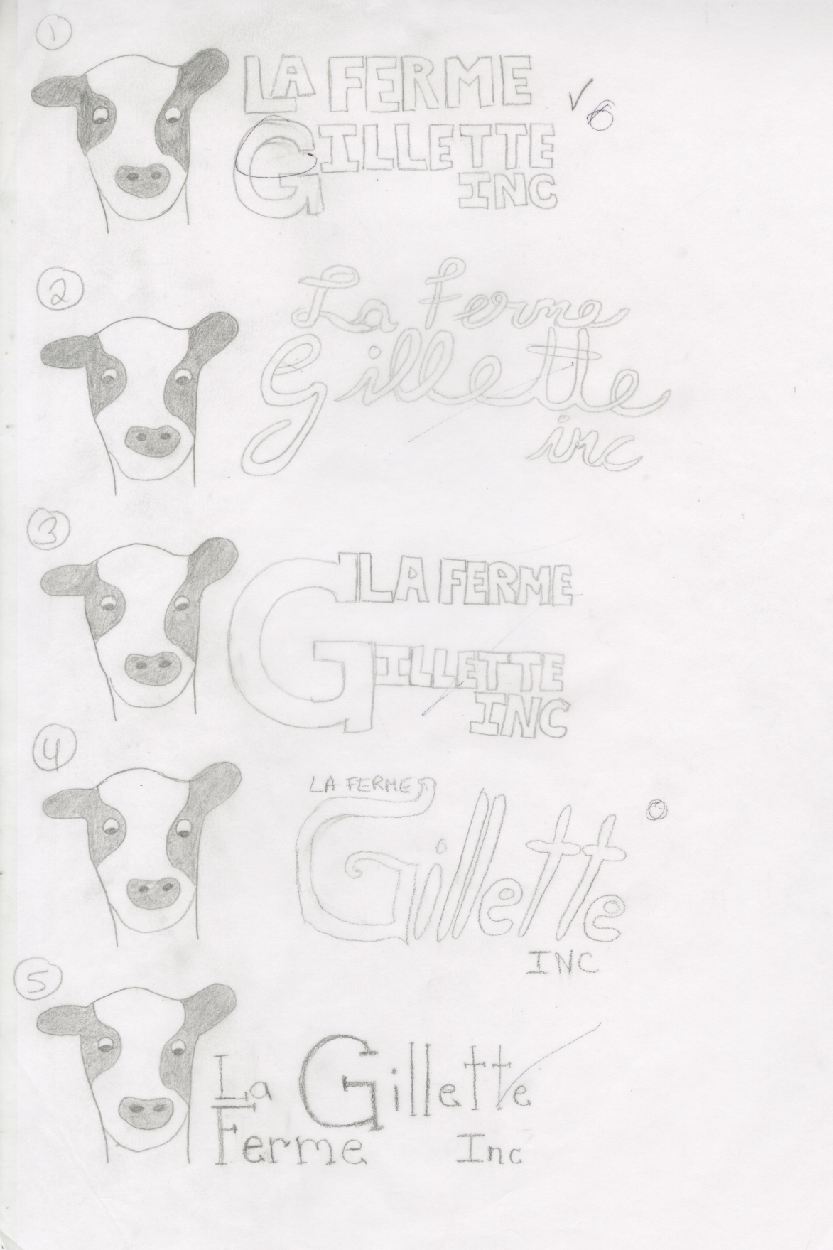 1
LA FERME
GILLETTE
INC
6
2
La Ferme
Gillette
inc
3
LA FERME
GILLETTE
INC
4
LA FERME
Gillette
INC
5
La Gillette
Ferme Inc